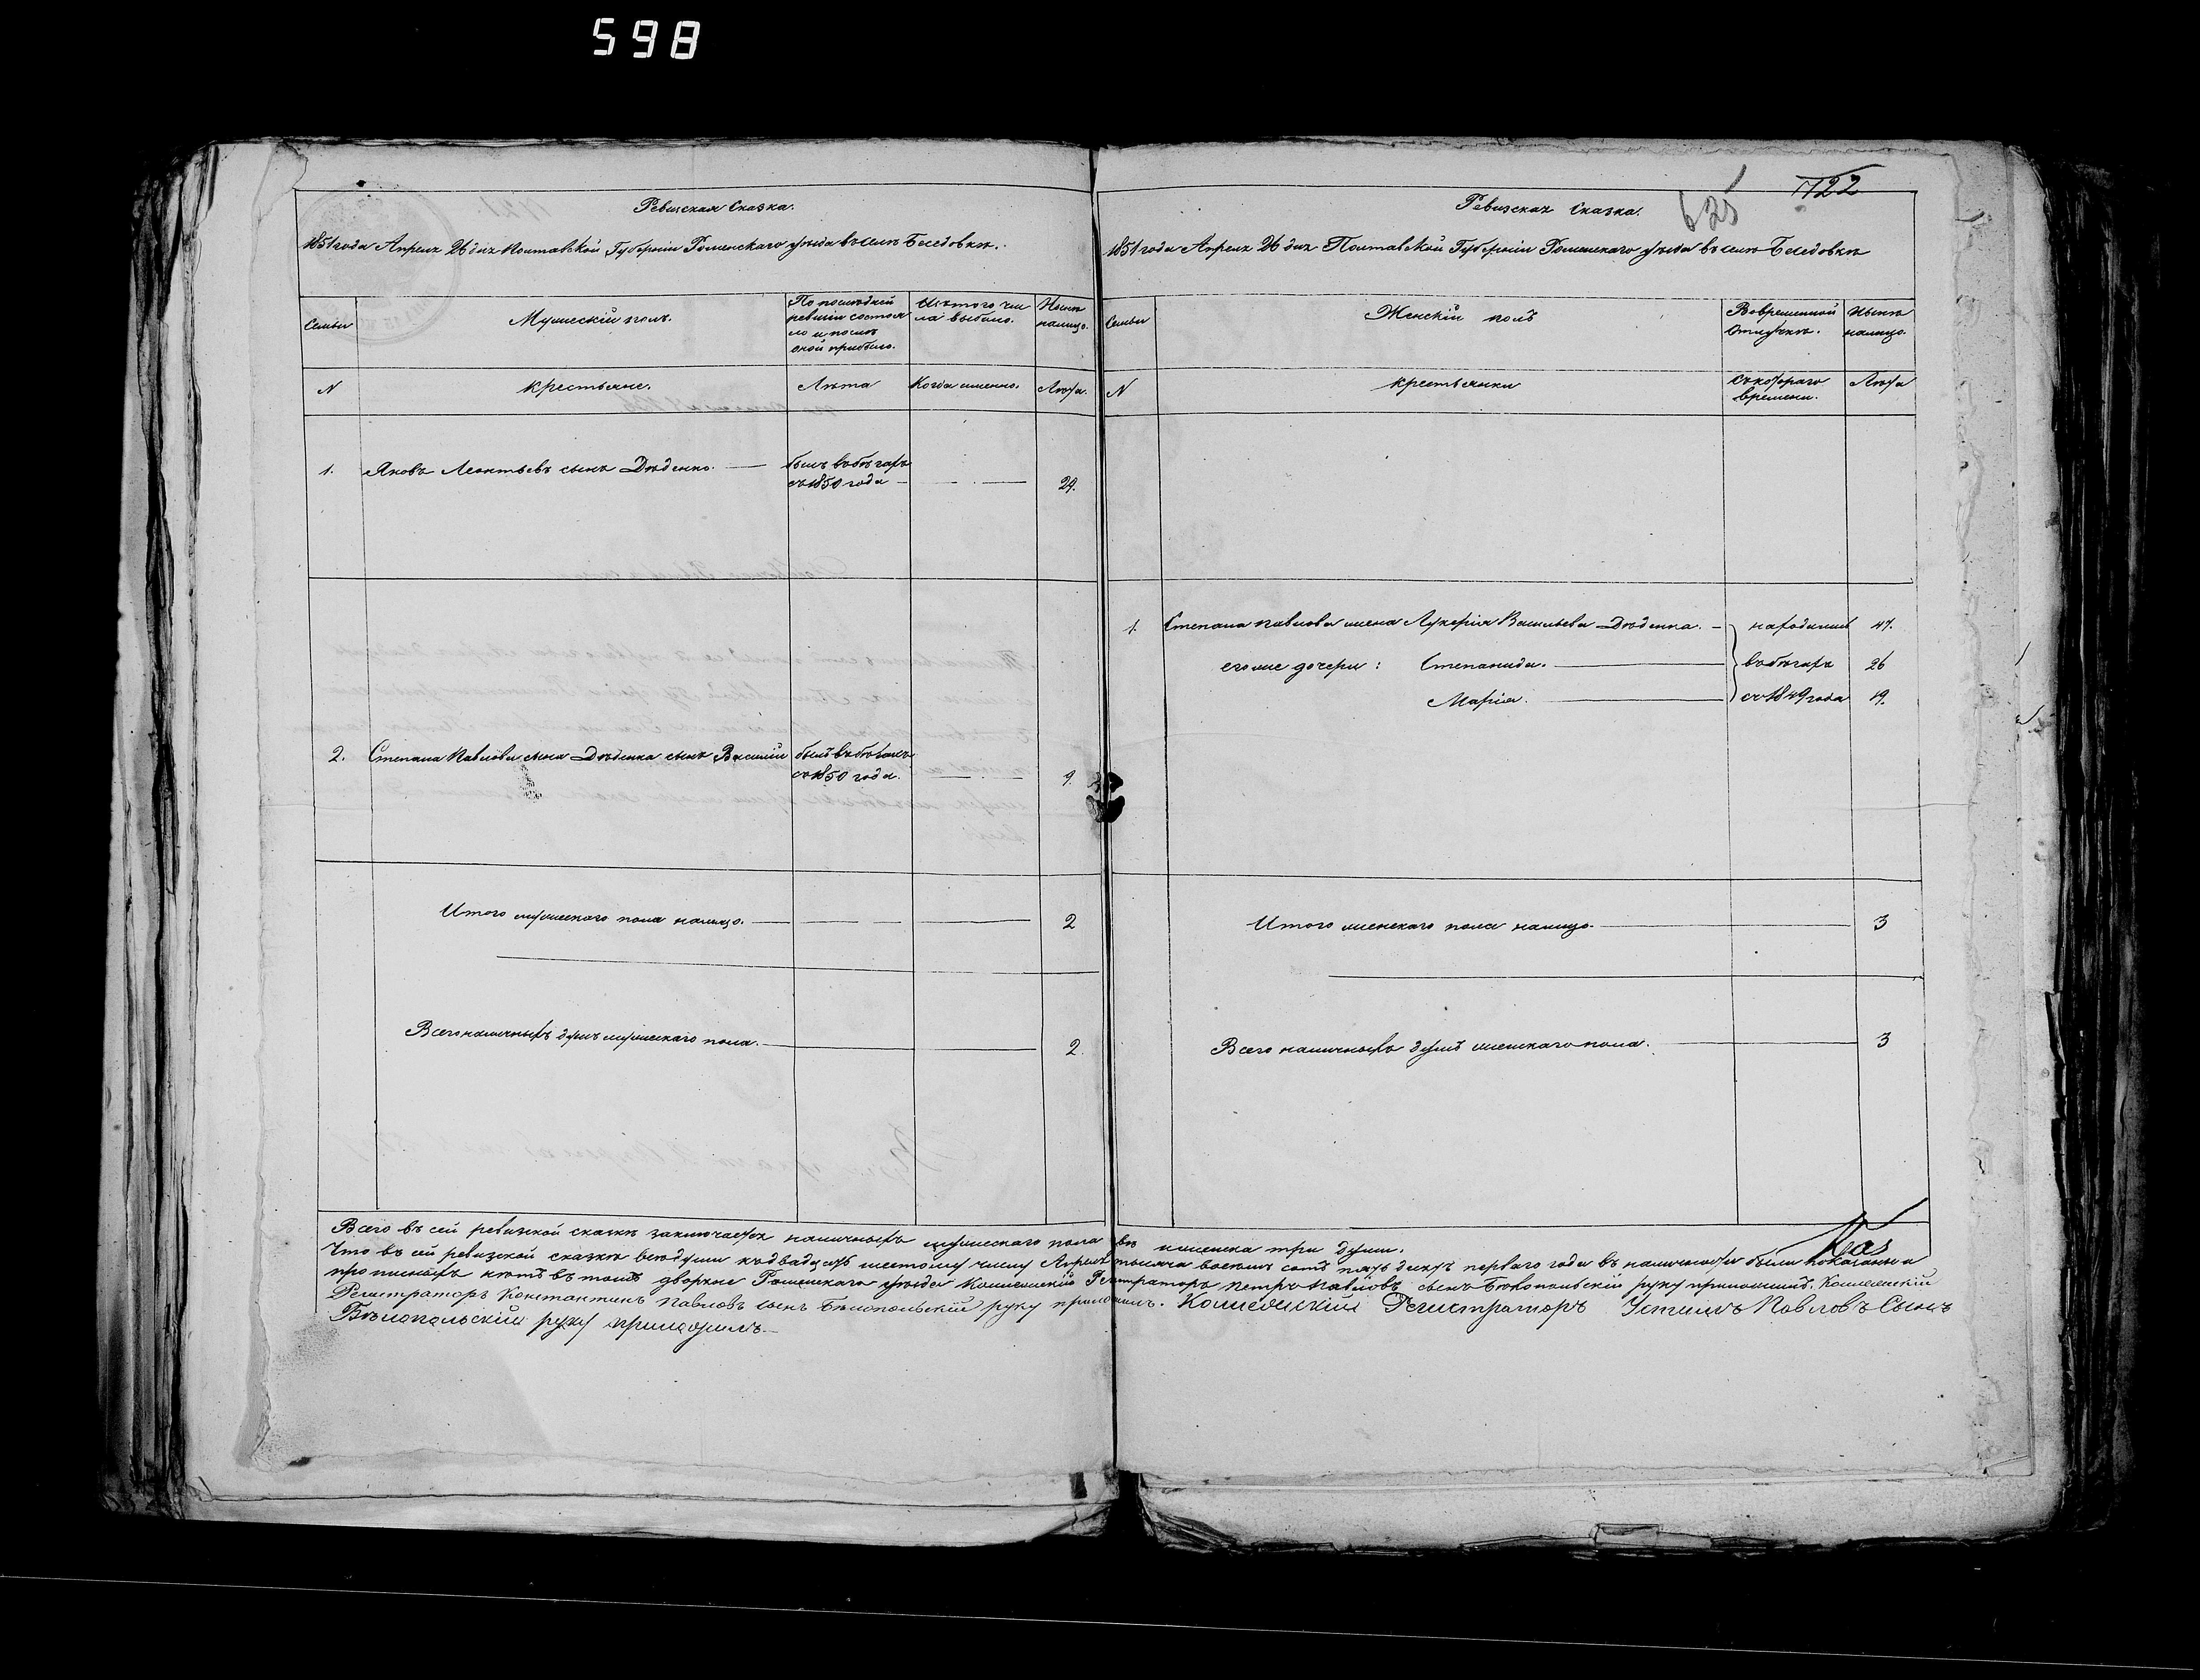 598
1722
625
Ревизская Сказка.
1851 года Апреля 26 дня Полтавской Губернии Роменскаго уезда в селе Беседовке.
Семьи
Мужескій полъ.
По последней
ревизіи состоя
ло и после
оной прибыло.
Изъ того чис
ла выбыло.
Ныне
налицо.
N
Крестьяне.
Лета
Когда именно.
Лета.
1.
Яковъ Леонтьевъ сынъ Дѣденко.
былъ въ бѣгахъ
съ 1850 года
29.
2.
Степана Павлова сына Дѣденка сынъ Василій
былъ въ бѣгахъ
съ 1850 года.
9.
Итого мужескаго пола налицо.
2
Всего наличныхъ душъ мужескаго пола.
2.
Ревизская Сказка.
1851 года Апреля 26 дня Полтавской Губерніи Роменскаго уезда въ селе Беседовке
Семьи
Женскій полъ
Во временной
отлучке.
Ныне
налицо.
N
Крестьянки
съ котораго
времени.
Лета
1.
Степана Павлова жена Лукерія Васильева Дѣденка.
находились
47.
его же дочери: Степанида.
въ бѣгахъ
26
Марія.
съ 1849 года
19.
Итого женскаго пола налицо.
3
Всего наличныхъ душъ женскаго пола.
3
Всего въ сей ревизкой сказке заключается наличныхъ мужескаго пола две женска три души.
Что въ сей ревизкой сказке все души къ двадцать шестому числу Апреля тысяча восемь сотъ пять десят перваго года въ наличности были показаны и
прописныхъ нетъ въ томъ дворяне Роменскаго уезда Колежскій Регистраторъ Петръ Павловъ сынъ Белопольскій руку приложилъ. Колежскій
Регистраторъ Константинъ Павловъ сынъ Белопольскій руку приложилъ. Колежскій Регистраторъ Устимъ Павловъ Сынъ
Бѣлопольскій руку приложилъ.